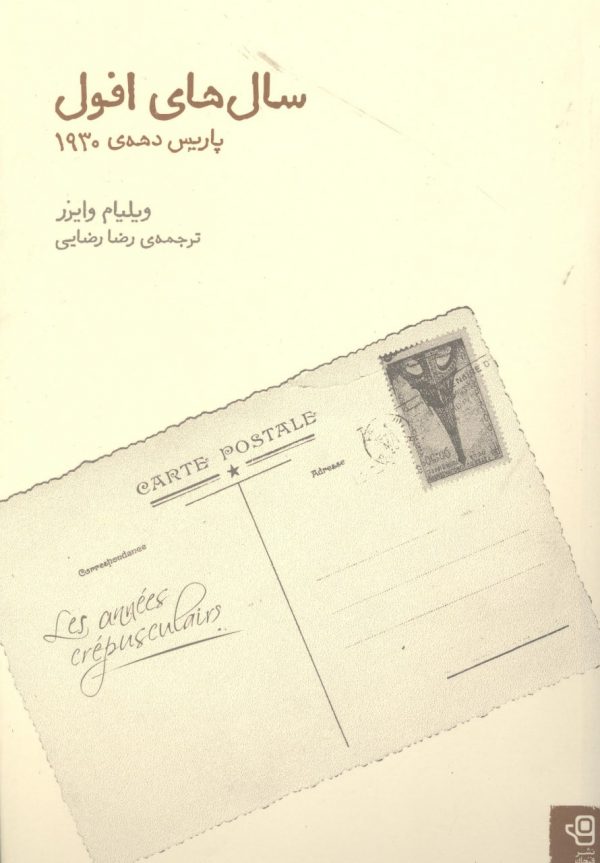 سال‌های افول
پاریس دهه‌ی ۱۹۳۰
ویلیام وایزر
ترجمه‌ی رضا رضایی
CARTE POSTALE
Adresse
Correspondance
Les années
crépusculairs